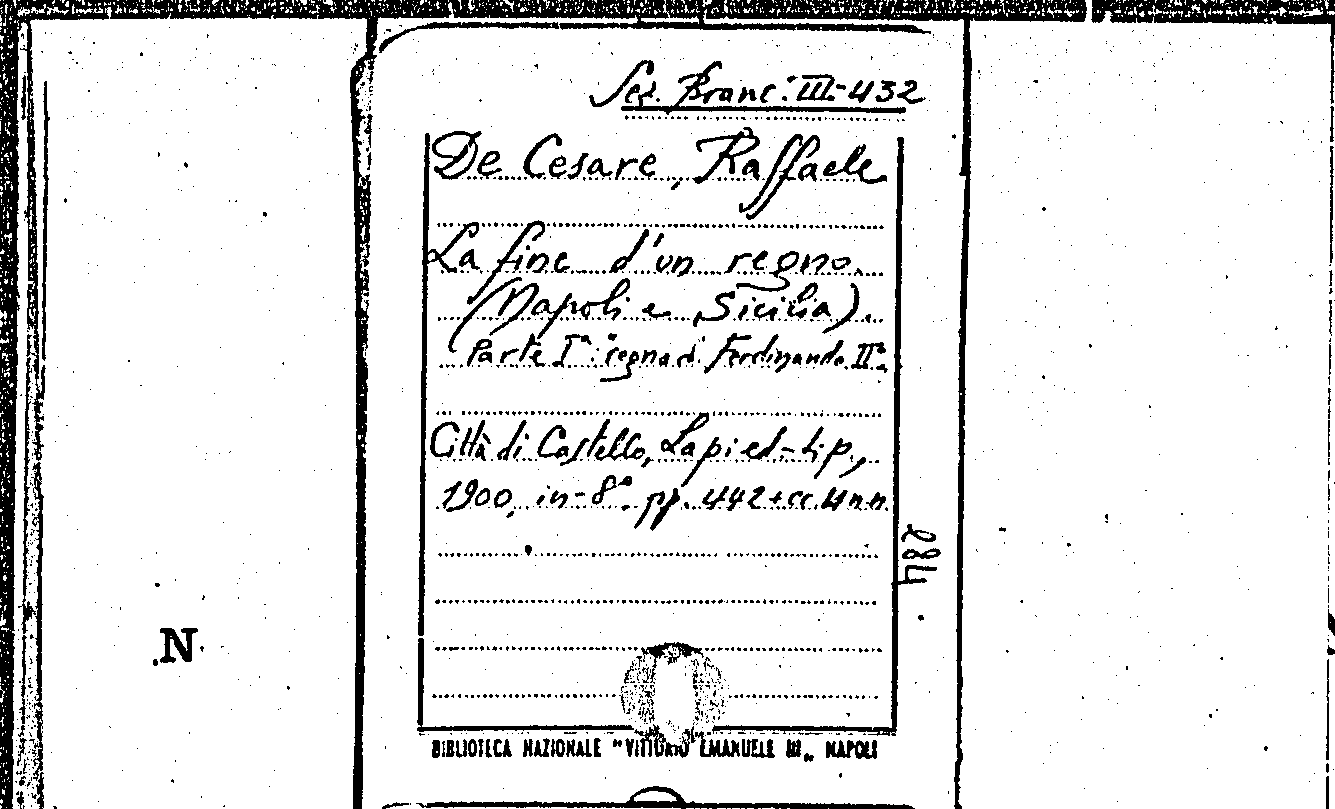 Sez. Branc. III-432
De Cesare, Raffaele
La fine d'un regno.
(Napoli e Sicilia).
Parte Iª: "regno di Ferdinando II°.
Città di Castello, Lapi ed-tip.,
1900, in-8°. pp. 442+cc.4n.n.
284
N
BIBLIOTECA NAZIONALE "VITTORIO EMANUELE III„ NAPOLI